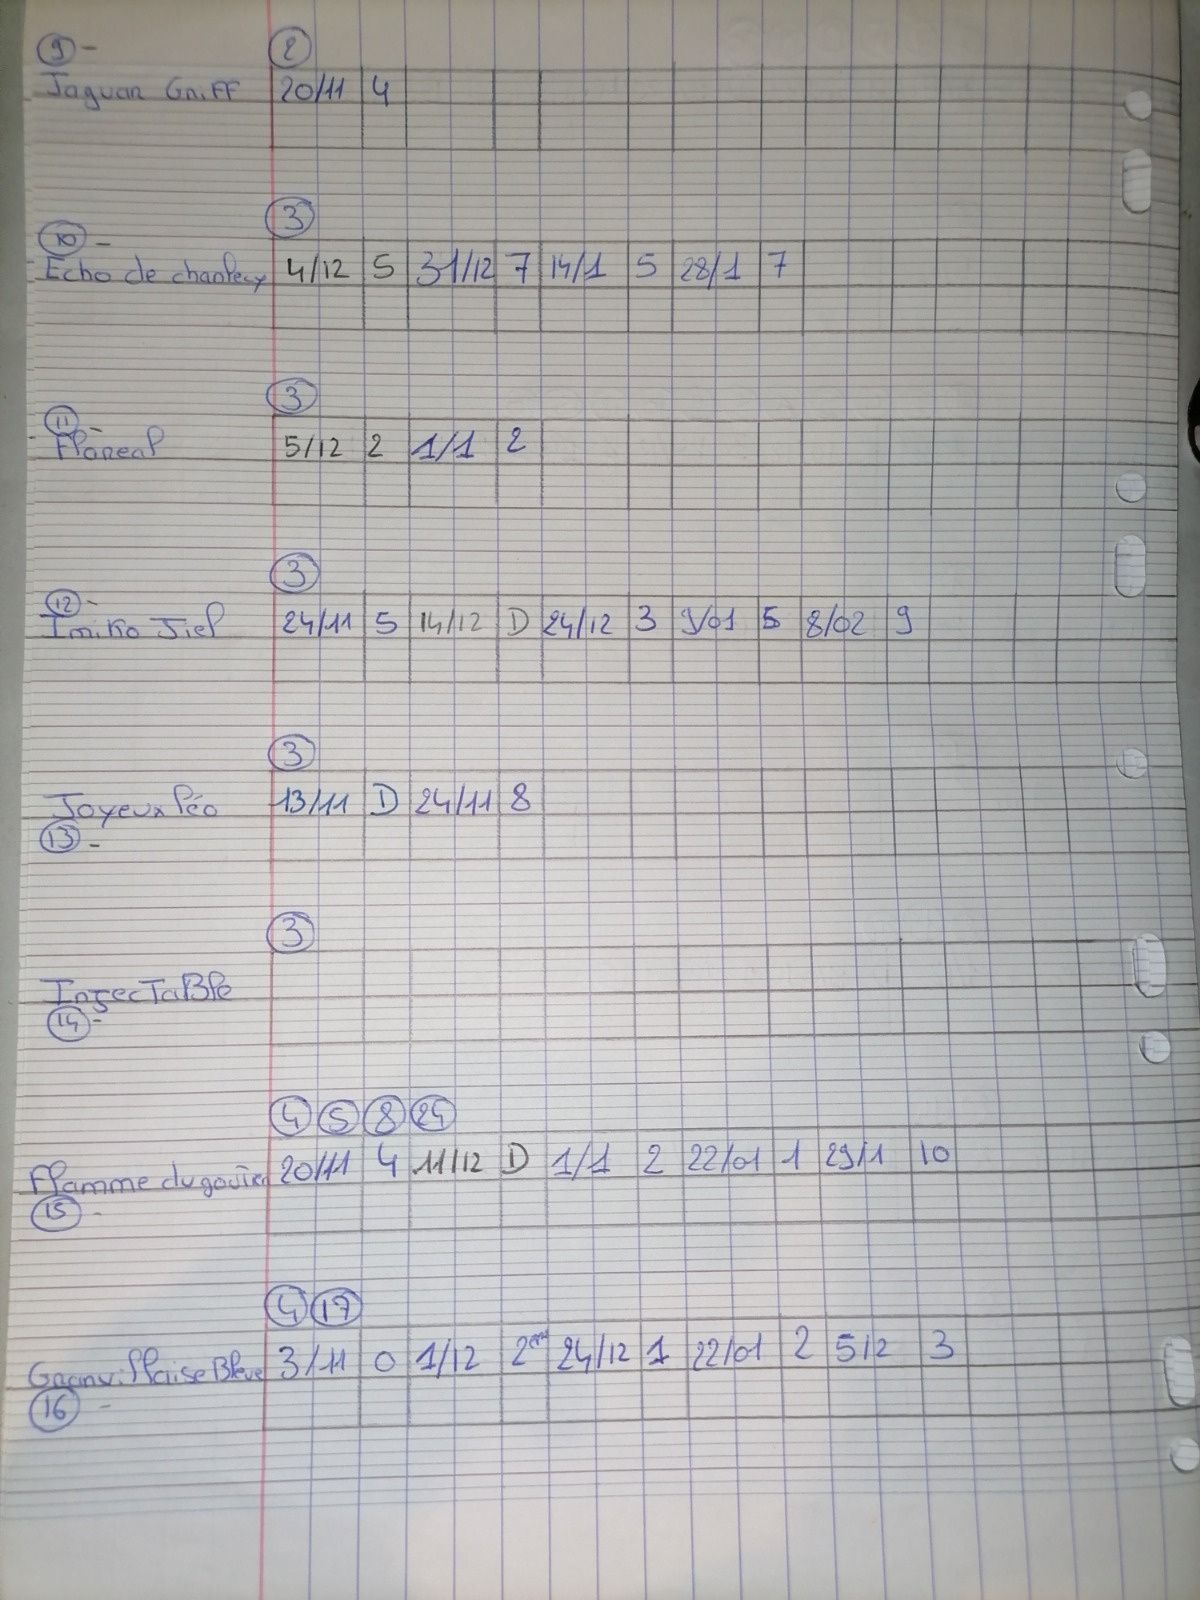 9 - 2
Jaguar Griff 20/11 4
3
10 -
Echo de chantecy 4/12 5 31/12 7 14/1 5 28/1 7
3
11 -
Floreal 5/12 2 1/1 2
3
12 -
Imiko Jiel 24/11 5 14/12 D 24/12 3 9/01 5 8/02 9
3
Joyeux Léo 13/11 D 24/11 8
13 -
3
InjecTaBle
14 -
4 5 8 24
Flamme du goutier 20/11 4 11/12 D 1/1 2 22/01 1 29/1 10
15 -
4 17
Granvillaise Bleue 3/11 0 1/12 2em 24/12 1 22/01 2 5/2 3
16 -